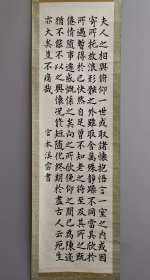 夫人之相與俯仰一世或取諸懷抱悟言一室之内或因
寄所託放浪形骸之外雖取舍萬殊静躁不同當其欣於
所遇暫得於己快然自足曾不知老之將至及其所之既
倦情隨事遷感慨係之矣向之所欣俛仰之間已為陳迹
猶不能不以之興懷況脩短隨化終期於盡古人云死生
亦大矣豈不痛哉 宮本溪書